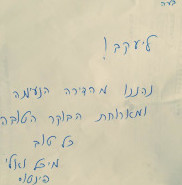 בעה
ליעקב!
נהננו מהדירה הנעימה
ומארוחת הבוקר הטובה
כל טוב
מיכל ואלי
פינטו